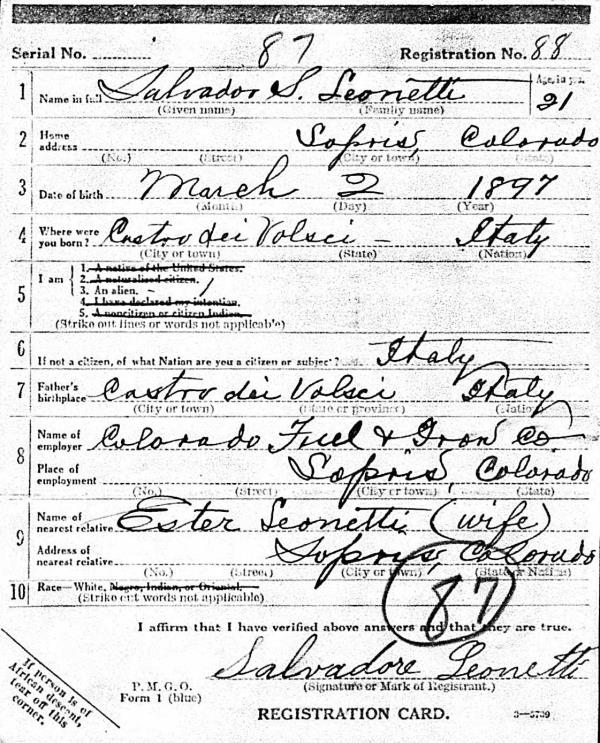 Serial No. 87 Registration No. 88
1 Name in full Salvador S. Leonetti Age, in yrs. 21
(Given name) (Family name)
2 Home address Sopris, Colorado
(No.) (Street) (City or town) (State)
3 Date of birth March 2 1897
(Month) (Day) (Year)
4 Where were you born? Castro dei Volsci - Italy
(City or town) (State) (Nation)
5 I am
1. A native of the United States.
2. A naturalized citizen.
3. An alien.
4. I have declared my intention.
5. A noncitizen or citizen Indian.
(Strike out lines or words not applicable)
6 If not a citizen, of what Nation are you a citizen or subject? Italy
7 Father's birthplace Castro dei Volsci Italy
(City or town) (State or province) (Nation)
8 Name of employer Colorado Fuel & Iron Co
Place of employment Sopris, Colorado
(No.) (Street) (City or town) (State)
9 Name of nearest relative Ester Leonetti (wife)
Address of nearest relative Sopris, Colorado
(No.) (Street) (City or town) (State or Nation)
10 Race—White, Negro, Indian, or Oriental.
(Strike out words not applicable)
87
I affirm that I have verified above answers and that they are true.
Salvadore Leonetti
(Signature or Mark of Registrant.)
P. M. G. O.
Form 1 (blue)
REGISTRATION CARD.
3—5739
If person is of
African descent,
tear off this
corner.